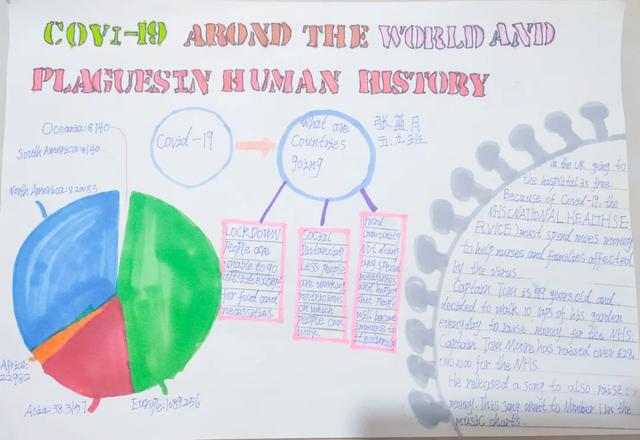 COVI-19 AROND THE WORLD AND
PLAGUESIN HUMAN HISTORY
Oceania:8140
South America:8140
North America:820083
Africa:
22982
Asia:383157
Europe:1089256
Covid-19
What are
Countries
going
张蓝月
LOCKDOWN
People are
unable to go
outside except
for fuid and
necessities.
SOCIAL
Distancing
Less people
are working
restrictions
on which
people can
work.
Herd
immunity
Not doing
any special
measures
and hoping
that People
will become
immune to
it naturally
in the UK going to
the hospital is free.
Because of Covid-19. the
NHS(NATIONAL HEALTHSE
RVICE) must spend moes money
to help nurses and families affected
by the virus.
Captain Tom is 99 years old and
decided to walk 10 laps of his garden
everyday to raise money for the NHS.
Captain Tom Moore has raistd over £28,
000,000 for the NHS.
He released a song to also raise
money. This song went to Number 1 in the
music charts.